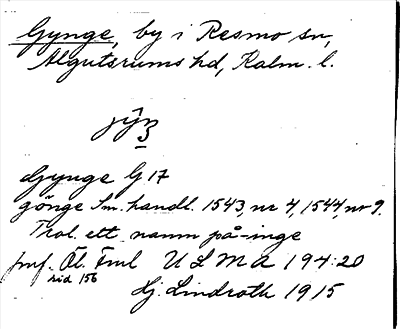 Gynge, by i Resmo sn,
Algutsrums hd, Kalm. l.
Gynge G 17
gönge Sm. handl. 1543, nr 4, 1544, nr 9.
Trol. ett namn på -inge
jmf. Öl. Fml U L M A 194:20
sid 156
Hj. Lindroth 1915